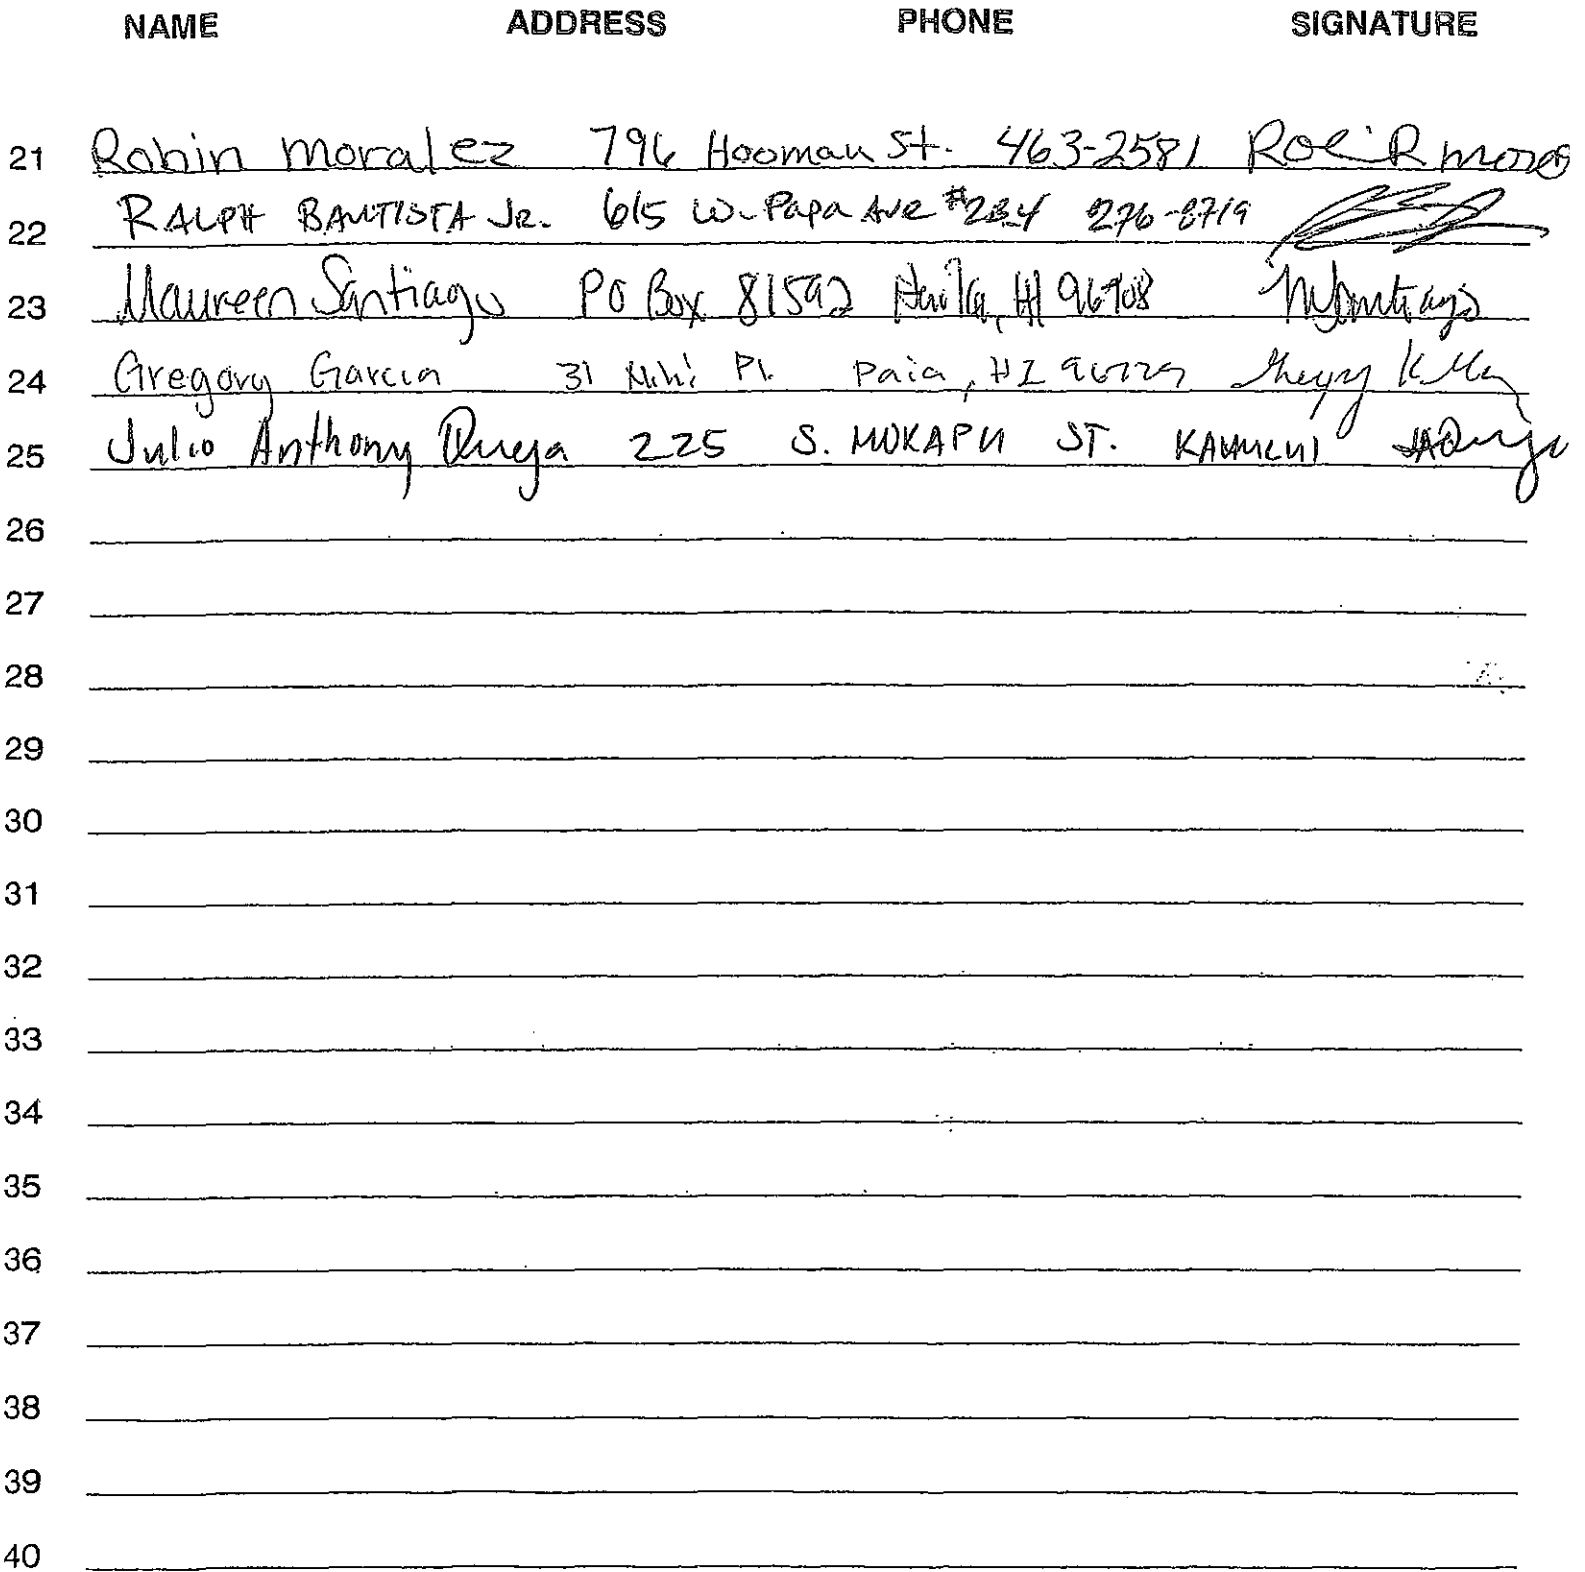 NAME ADDRESS PHONE SIGNATURE
21 Robin Moralez 796 Hooman St. 463-2581
22 RALPH BAUTISTA JR. 615 W. Papa Ave #234 276-8719
23 Maureen Santiago PO Box 81592 Haiku, HI 96708
24 Gregory Garcia 31 Nihi Pl. Paia, HI 96779
25 Julio Anthony 225 S. MOKAPU ST. KAHULUI
26
27
28
29
30
31
32
33
34
35
36
37
38
39
40